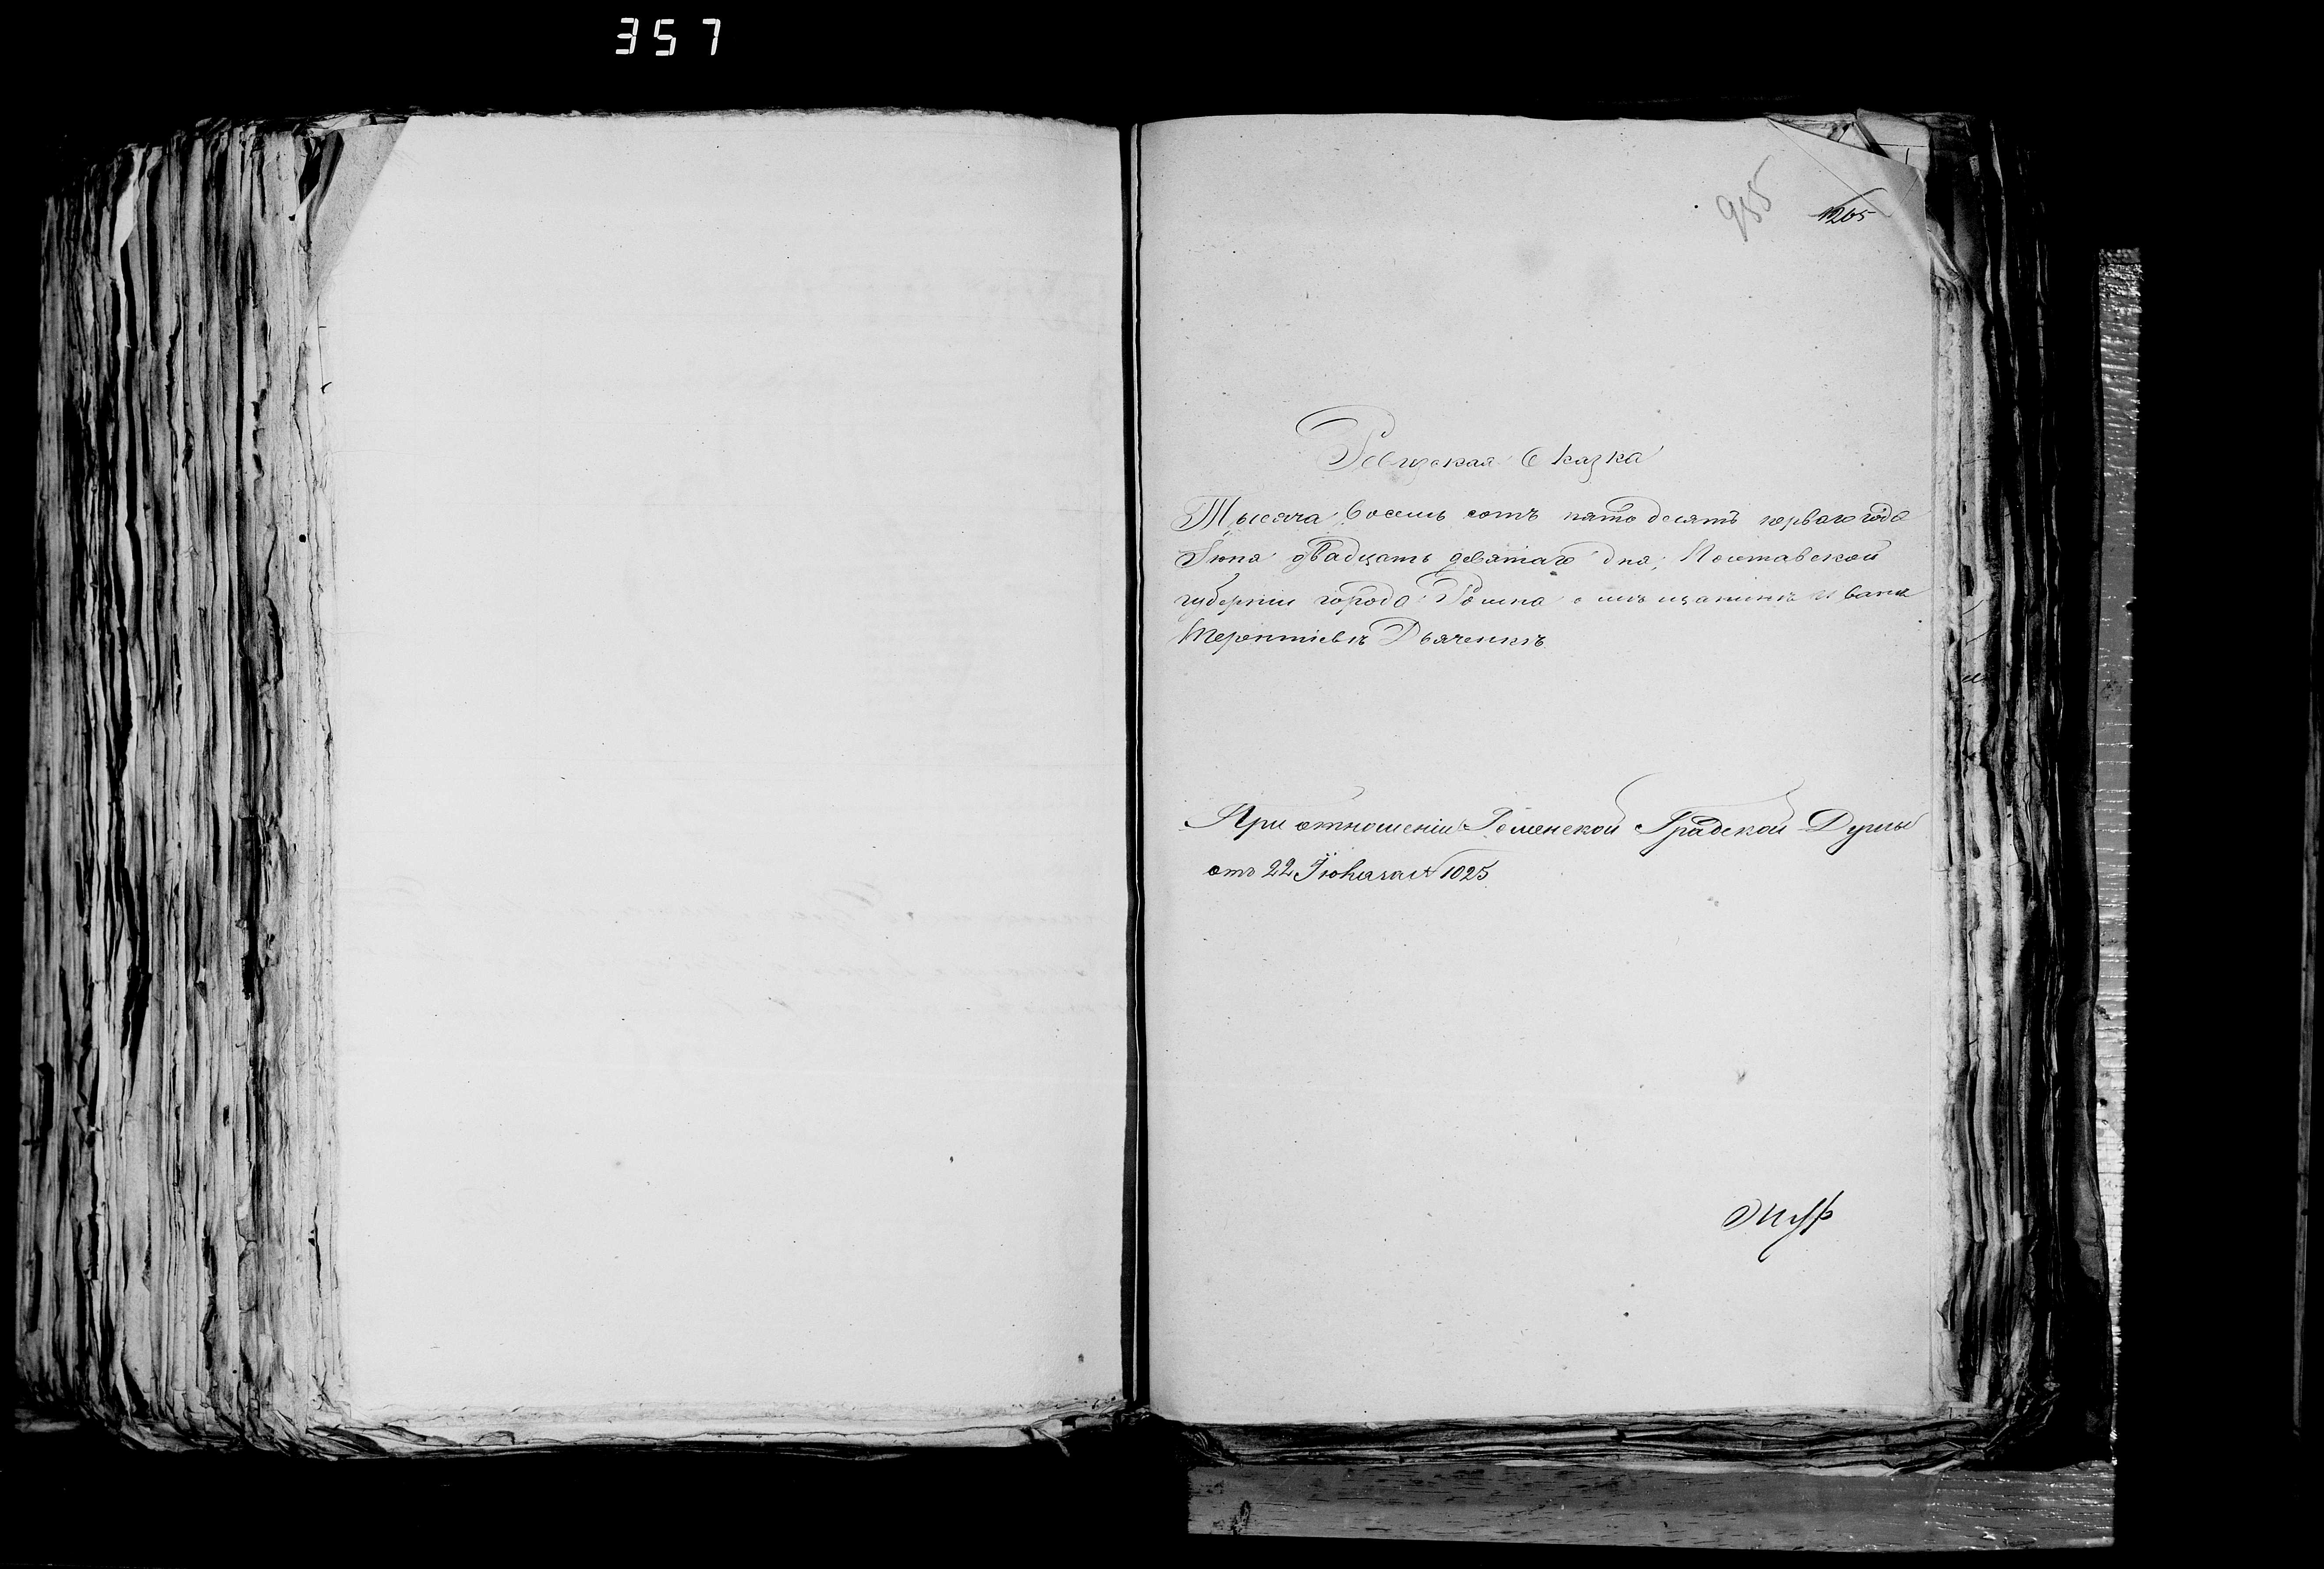 357
955
1265
Ревизская Сказка
Тысяча восемь сотъ пятодесятъ перваго года
Іюня двадцать девятаго дня, Полтавской
губерніи города Ромна о мѣщанинѣ Иванѣ
Терентіевѣ Дьяченкѣ
При отношеніи Роменской Градской Думы
отъ 22 № 1025